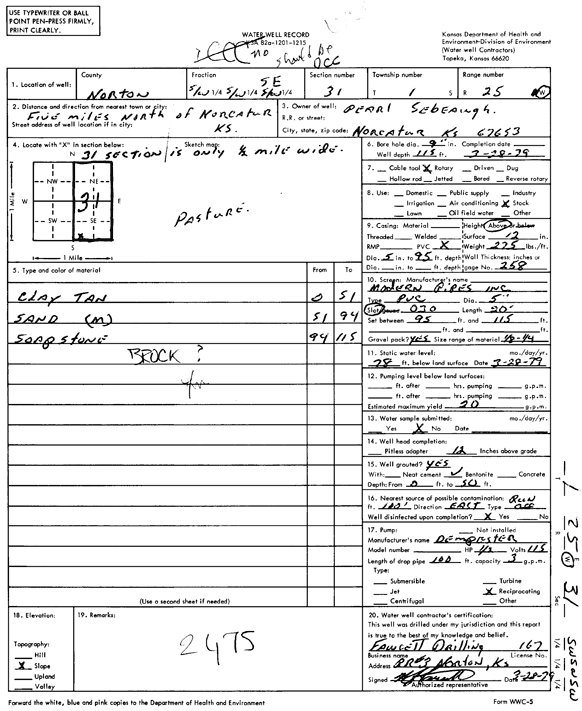 USE TYPEWRITER OR BALL
POINT PEN-PRESS FIRMLY,
PRINT CLEARLY.
WATER WELL RECORD
KSA 82a-1201-1215
no should be
OCC
Kansas Department of Health and
Environment-Division of Environment
(Water well Contractors)
Topeka, Kansas 66620
1. Location of well:
County
NORTON
Fraction
SE
S/W 1/4 S/W 1/4 S/W 1/4
Section number
31
Township number
T 1 S
Range number
R 25 W
2. Distance and direction from nearest town or city:
FIVE MILES NORTH OF NORCATUR
Street address of well location if in city:
KS.
3. Owner of well: PEARL SEBEAUGH.
R.R. or street:
City, state, zip code: NORCATUR KS 67653
4. Locate with "X" in section below:
Sketch map:
N 31 SECTION IS ONLY ½ MILE WIDE.
NW NE
W 31 E
SW SE
X
S
1 Mile
1 Mile
PASTURE.
6. Bore hole dia. 9" in. Completion date
Well depth 115 ft. 3-28-79
7. Cable tool X Rotary Driven Dug
Hollow rod Jetted Bored Reverse rotary
8. Use: Domestic Public supply Industry
Irrigation Air conditioning X Stock
Lawn Oil field water Other
9. Casing: Material Height: Above or below
Threaded Welded Surface 12 in.
RMP PVC X Weight 275 lbs./ft.
Dia. 5 in. to 95 ft. depth Wall Thickness: inches or
Dia. in. to ft. depth gage No. 258
5. Type and color of material
From To
CLAY TAN 0 51
SAND (M) 51 94
SOAPSTONE 94 115
BROCK ?
10. Screen: Manufacturer's name
MODERN PIPES INC
Type PVC Dia. 5"
Slot/gauze .030 Length 20'
Set between 95 ft. and 115 ft.
ft. and ft.
Gravel pack? YES Size range of material 1/8-1/4
11. Static water level: mo./day/yr.
78 ft. below land surface Date 3-28-79
12. Pumping level below land surfaces:
ft. after hrs. pumping g.p.m.
ft. after hrs. pumping g.p.m.
Estimated maximum yield 20 g.p.m.
13. Water sample submitted: mo./day/yr.
Yes X No Date
14. Well head completion:
Pitless adapter 12 Inches above grade
15. Well grouted? YES
With: Neat cement ✓ Bentonite Concrete
Depth: From 0 ft. to 50 ft.
16. Nearest source of possible contamination: RUN
ft. 100' Direction EAST Type OFF
Well disinfected upon completion? X Yes No
17. Pump: Not installed
Manufacturer's name DEMPSTER
Model number HP 1/2 Volts 115
Length of drop pipe 100 ft. capacity 3 g.p.m.
Type:
Submersible Turbine
Jet X Reciprocating
Centrifugal Other
(Use a second sheet if needed)
18. Elevation:
Topography:
Hill
X Slope
Upland
Valley
19. Remarks:
2475
20. Water well contractor's certification:
This well was drilled under my jurisdiction and this report
is true to the best of my knowledge and belief.
FAWCETT DRILLING 167
Business name License No.
Address RR#3 NORTON, KS
Signed Date 3-28-79
Authorized representative
Forward the white, blue and pink copies to the Department of Health and Environment
Form WWC-5
T 1 R 25 W Sec 31 1/4 1/4 1/4 SW SW SW